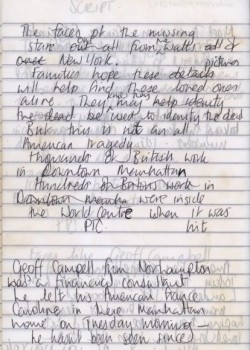 SCRIPT
The faces of the missing
stare out all from the walls all of
over New York. pictures
Families hope these details
will help find these loved ones
alive. They may help identify
the dead be used to identify the dead
But this is not an all
American tragedy
Thousands of British work
in Downtown Manhattan
Hundreds of Britons work in
Downtown Manhattan were inside
the World Centre when it was
PTC hit
Geoff Campbell from Northampton
was a financial consultant
he left his American fiancee
Caroline in there Manhattan
home on Tuesday morning –
he hasn't been seen since